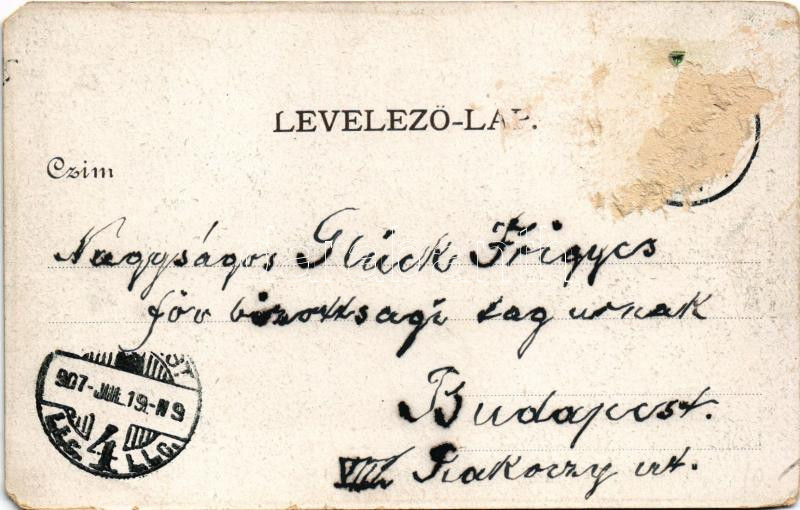 LEVELEZŐ-LAP.
Czim
Nagyságos Glück Frigyes
föv bizottsagi tag urnak
Budapest.
VIII Rakoczy ut.
907-JUL.19.-N9
4